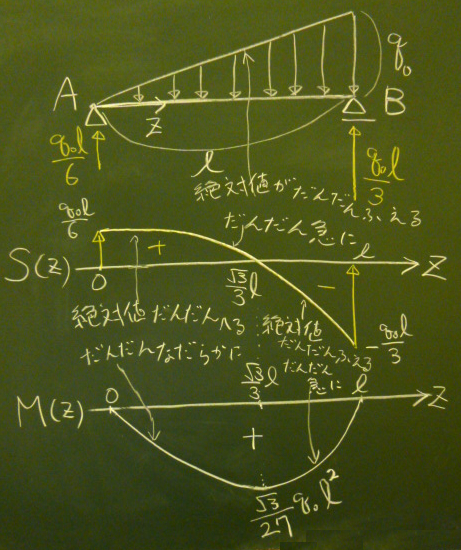 q₀
A
B
z
q₀l/6
l
q₀l/3
絶対値がだんだんふえる
q₀l/6
だんだん急に
+
S(z)
0
√3/3 l
−
l
z
絶対値だんだんへる
絶対値
だんだんふえる
−q₀l/3
だんだんなだらかに
だんだん
急に
√3/3 l
M(z)
0
l
z
+
√3/27 q₀l²